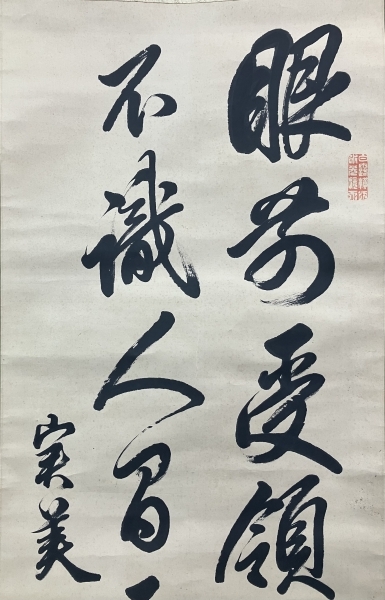 眼前受領
不識人間
実美